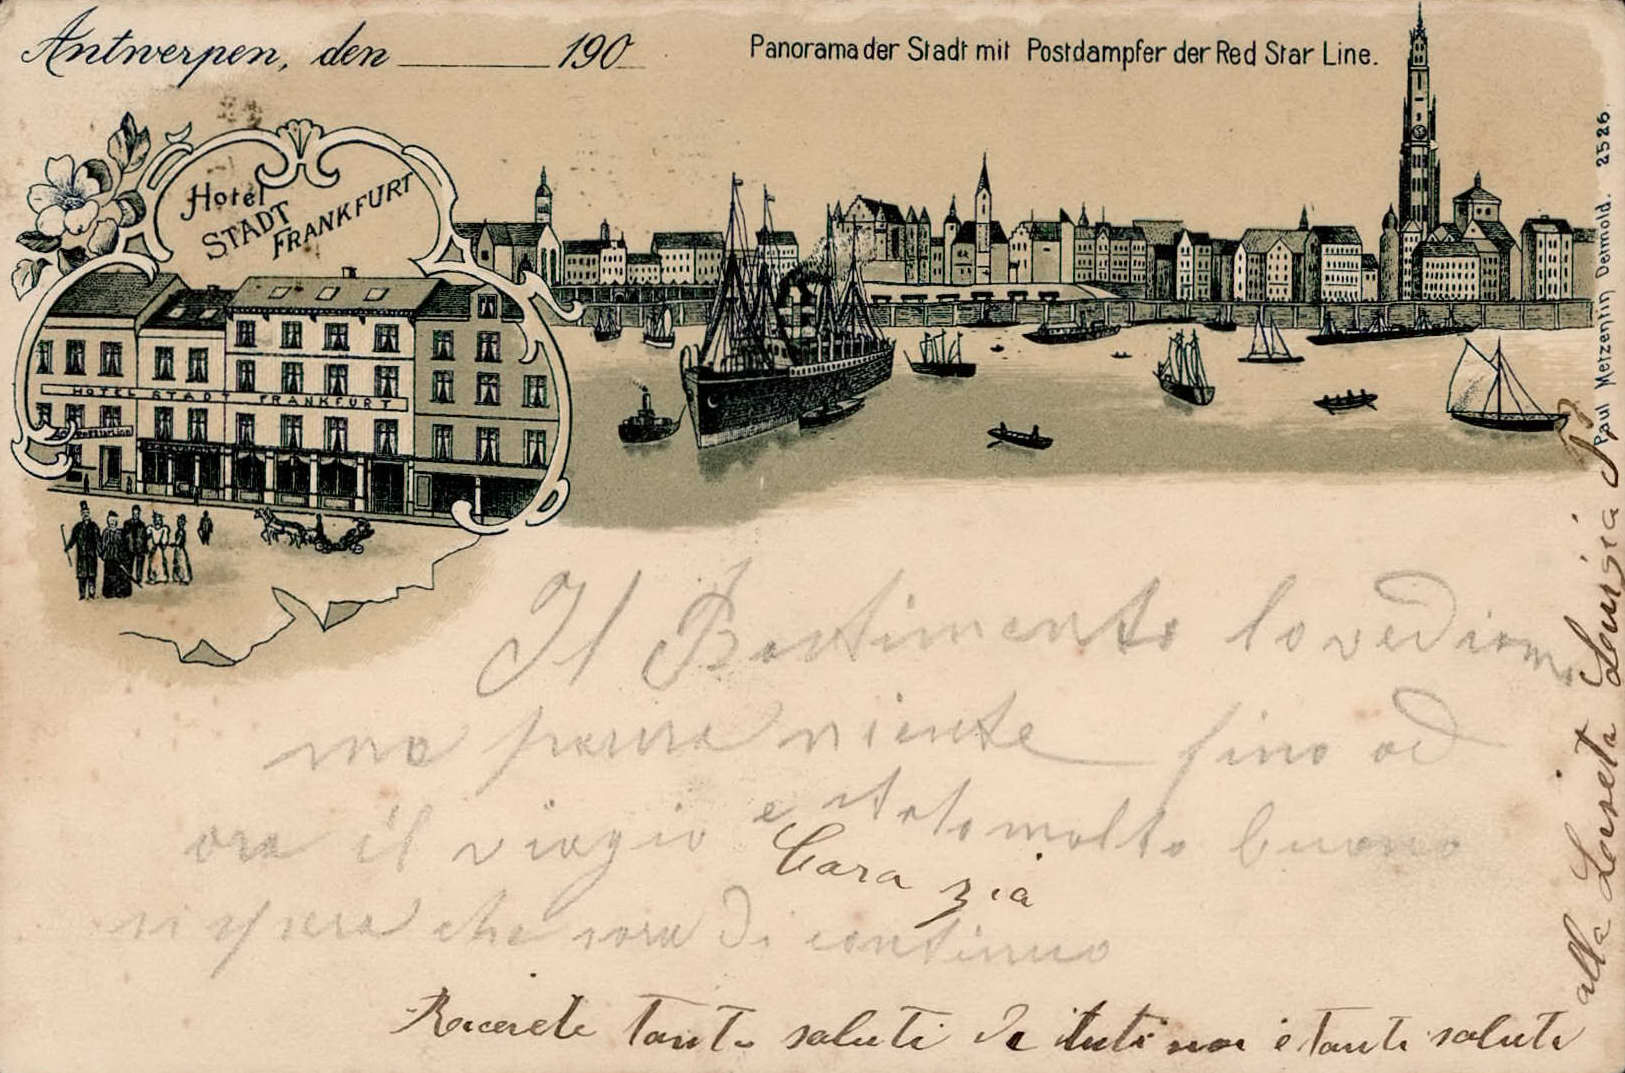 Antwerpen, den ________ 190_
Panorama der Stadt mit Postdampfer der Red Star Line.
Hotel
STADT
FRANKFURT
HOTEL STADT FRANKFURT
Paul Metzentin Detmold. 2526.
Il Bastimento lo vediamo
ma paura niente fino ad
ora il viagio e stato molto buono
si spera che sara di continuo
Cara zia
Ricevete tanti saluti da tuti noi e tanti saluti
alla Luiseta Luisia